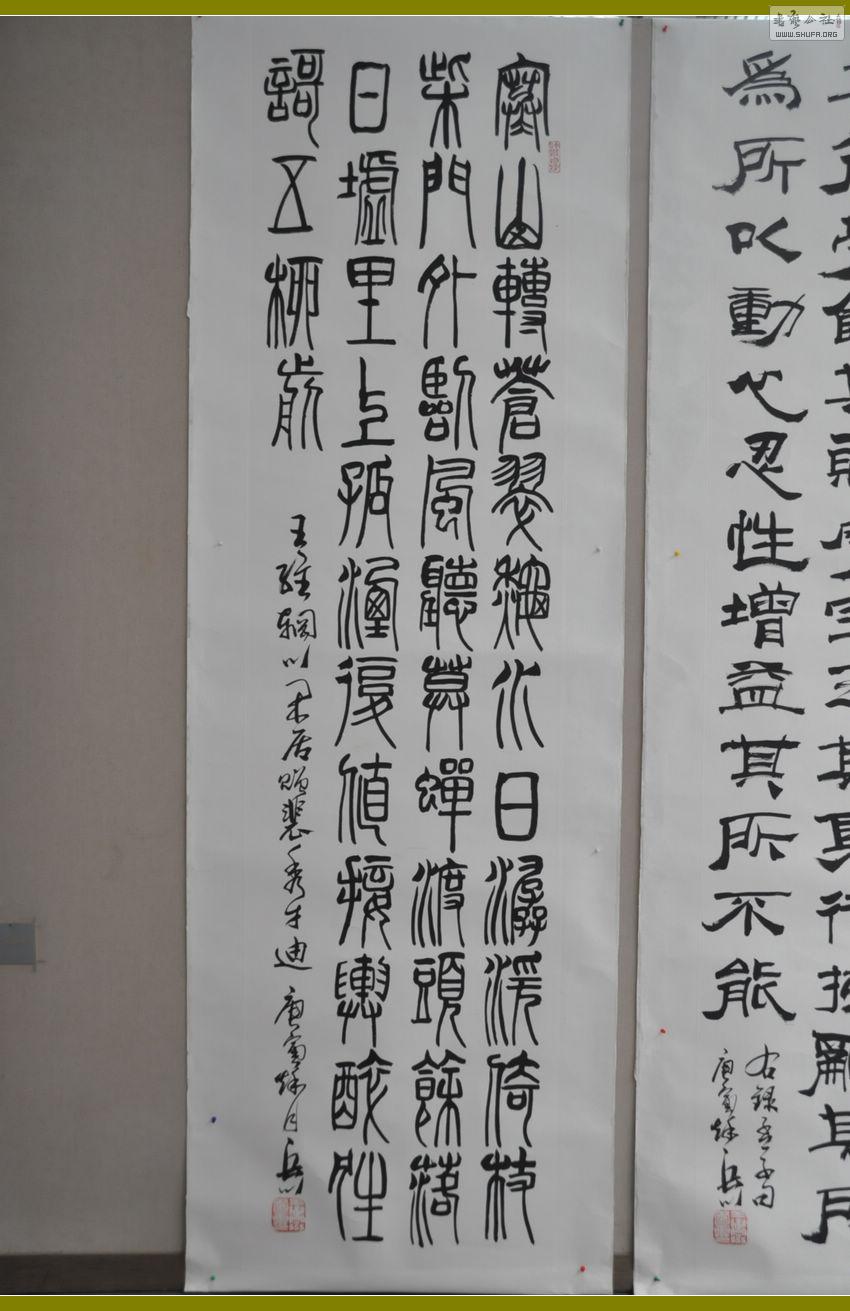 WWW.SHUFA.ORG
為所以動心忍性增益其所不能
右錄孟子句
庚寅秋
寒山轉蒼翠秋水日潺湲倚杖
柴門外臨風聽暮蟬渡頭餘落
日墟里上孤煙復值接輿醉狂
謌五柳前
王維輞川閑居贈裴秀才迪 庚寅秋月